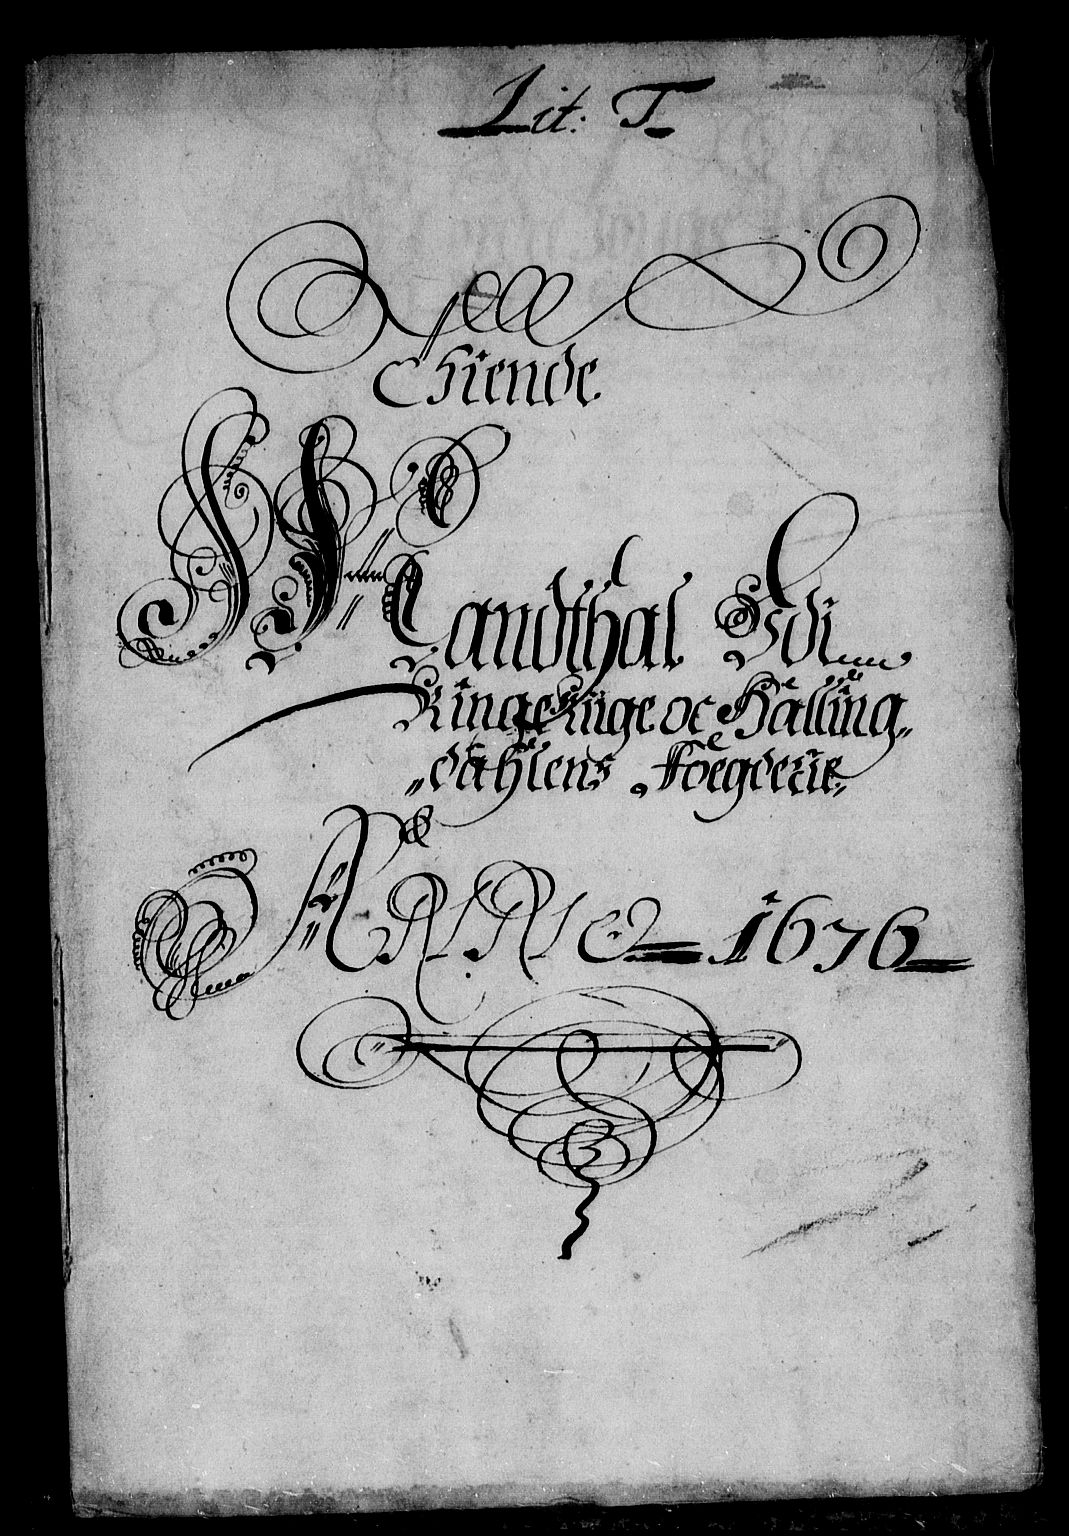 Lit: T
Thiende
Mandthal Udi
Ringe Riige oc Halling
dahlens Foegderie
ANNO 1676